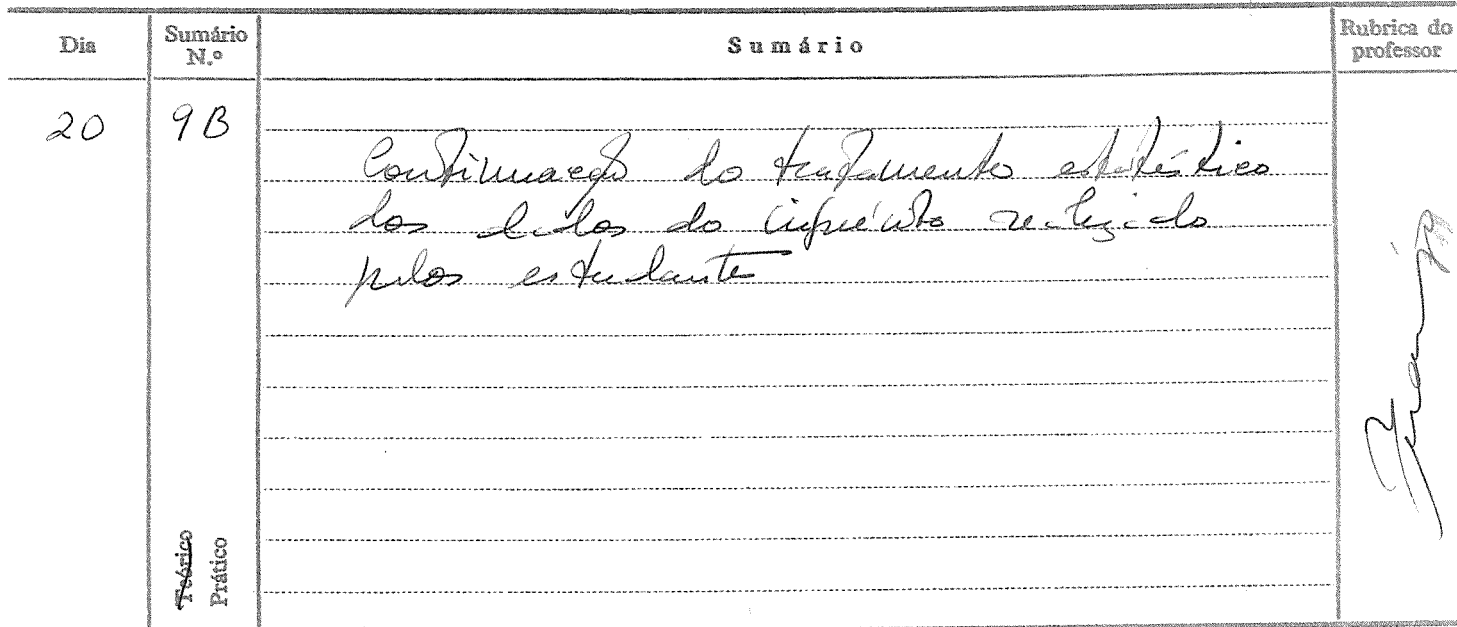 Dia
Sumário N.º
Sumário
Rubrica do professor
20
9B
Continuação do tratamento estatístico
dos dados do inquérito realizado
pelos estudante
Teórico
Prático